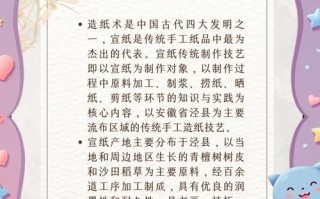 造纸术是中国古代四大发明之
一，宣纸是传统手工纸品中最为
杰出的代表。宣纸传统制作技艺
即以宣纸为制作对象，以制作过
程中原料加工、制浆、捞纸、晒
纸、剪纸等环节的知识与实践为
核心内容，以安徽省泾县为主要
流布区域的传统手工造纸技艺。
宣纸产地主要分布于泾县，以当
地和周边地区生长的青檀树树皮
和沙田稻草为主要原料，经百余
道工序加工制成，具有优良的润